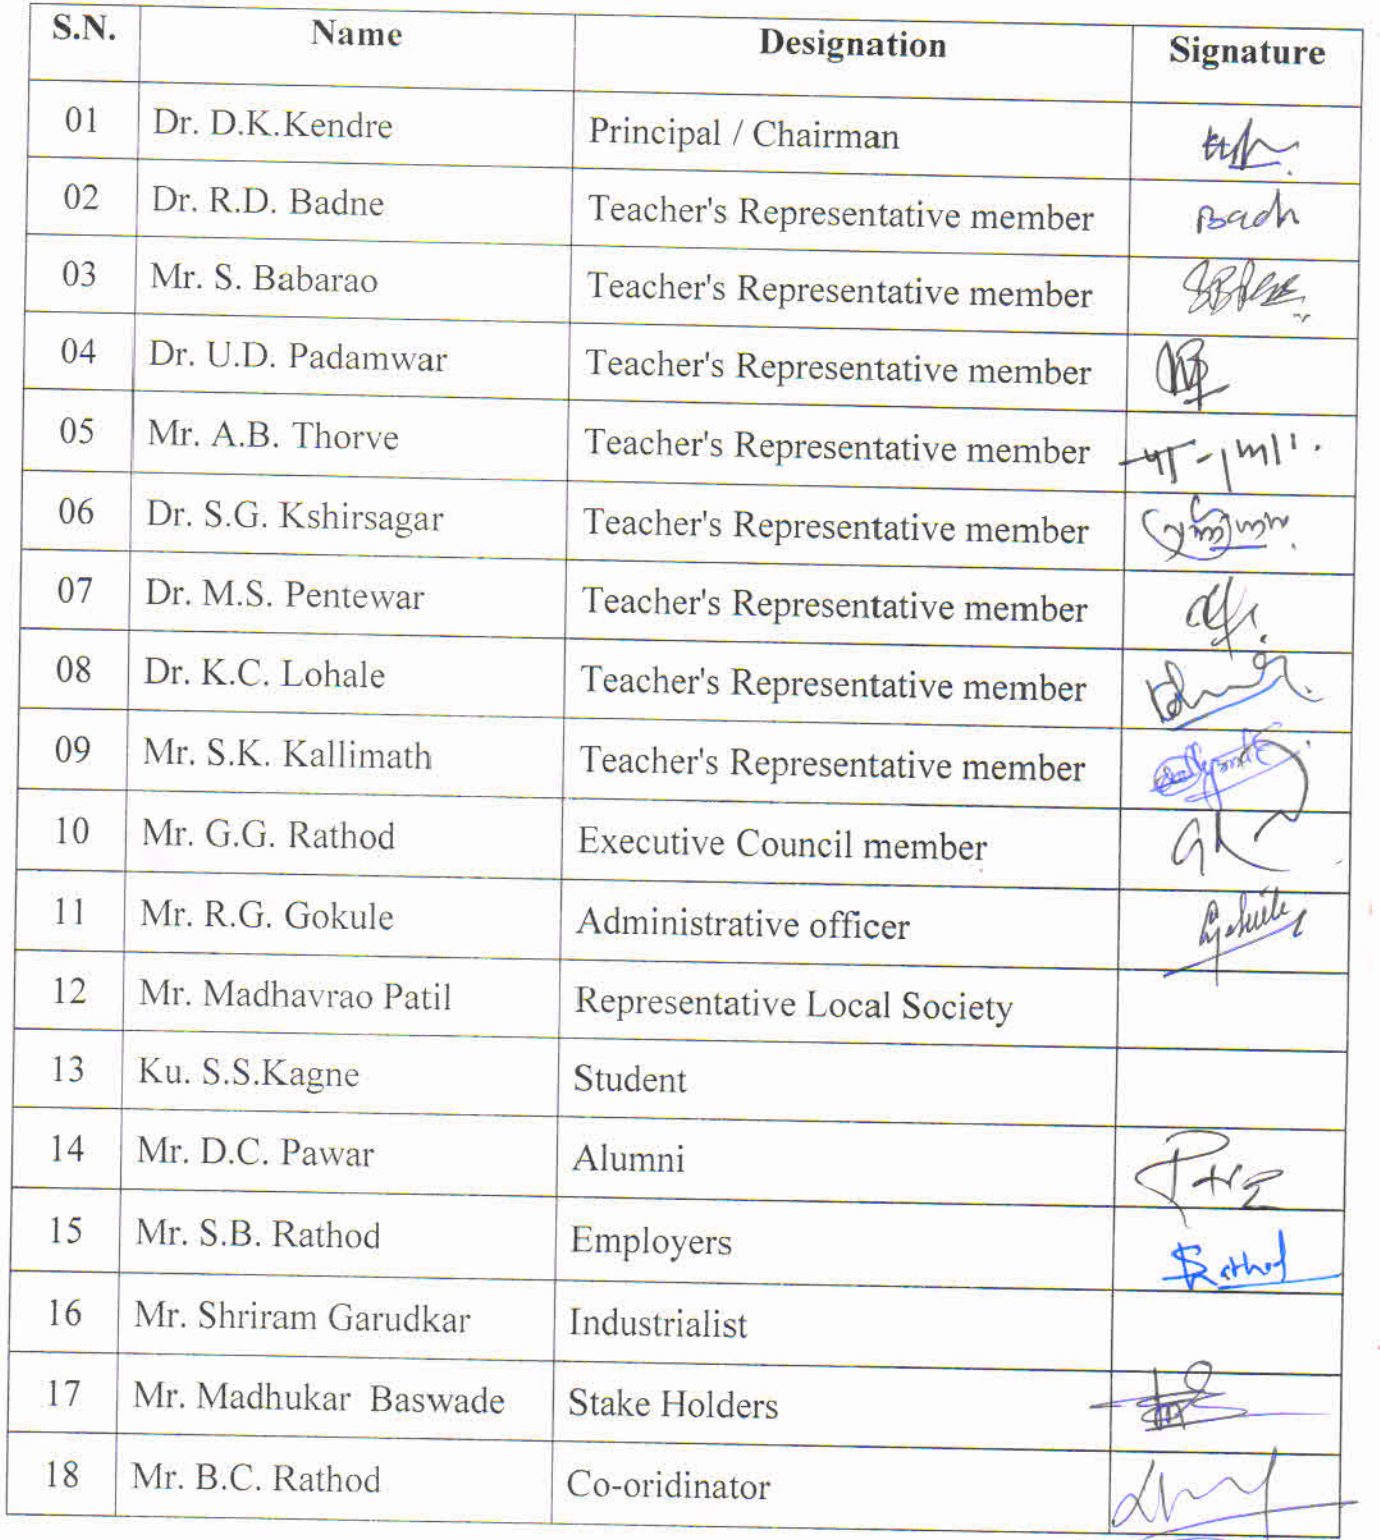 S.N. Name Designation Signature
01 Dr. D.K.Kendre Principal / Chairman
02 Dr. R.D. Badne Teacher's Representative member Badn
03 Mr. S. Babarao Teacher's Representative member
04 Dr. U.D. Padamwar Teacher's Representative member
05 Mr. A.B. Thorve Teacher's Representative member
06 Dr. S.G. Kshirsagar Teacher's Representative member
07 Dr. M.S. Pentewar Teacher's Representative member
08 Dr. K.C. Lohale Teacher's Representative member
09 Mr. S.K. Kallimath Teacher's Representative member
10 Mr. G.G. Rathod Executive Council member
11 Mr. R.G. Gokule Administrative officer Gokule
12 Mr. Madhavrao Patil Representative Local Society
13 Ku. S.S.Kagne Student
14 Mr. D.C. Pawar Alumni
15 Mr. S.B. Rathod Employers SRathod
16 Mr. Shriram Garudkar Industrialist
17 Mr. Madhukar Baswade Stake Holders
18 Mr. B.C. Rathod Co-oridinator